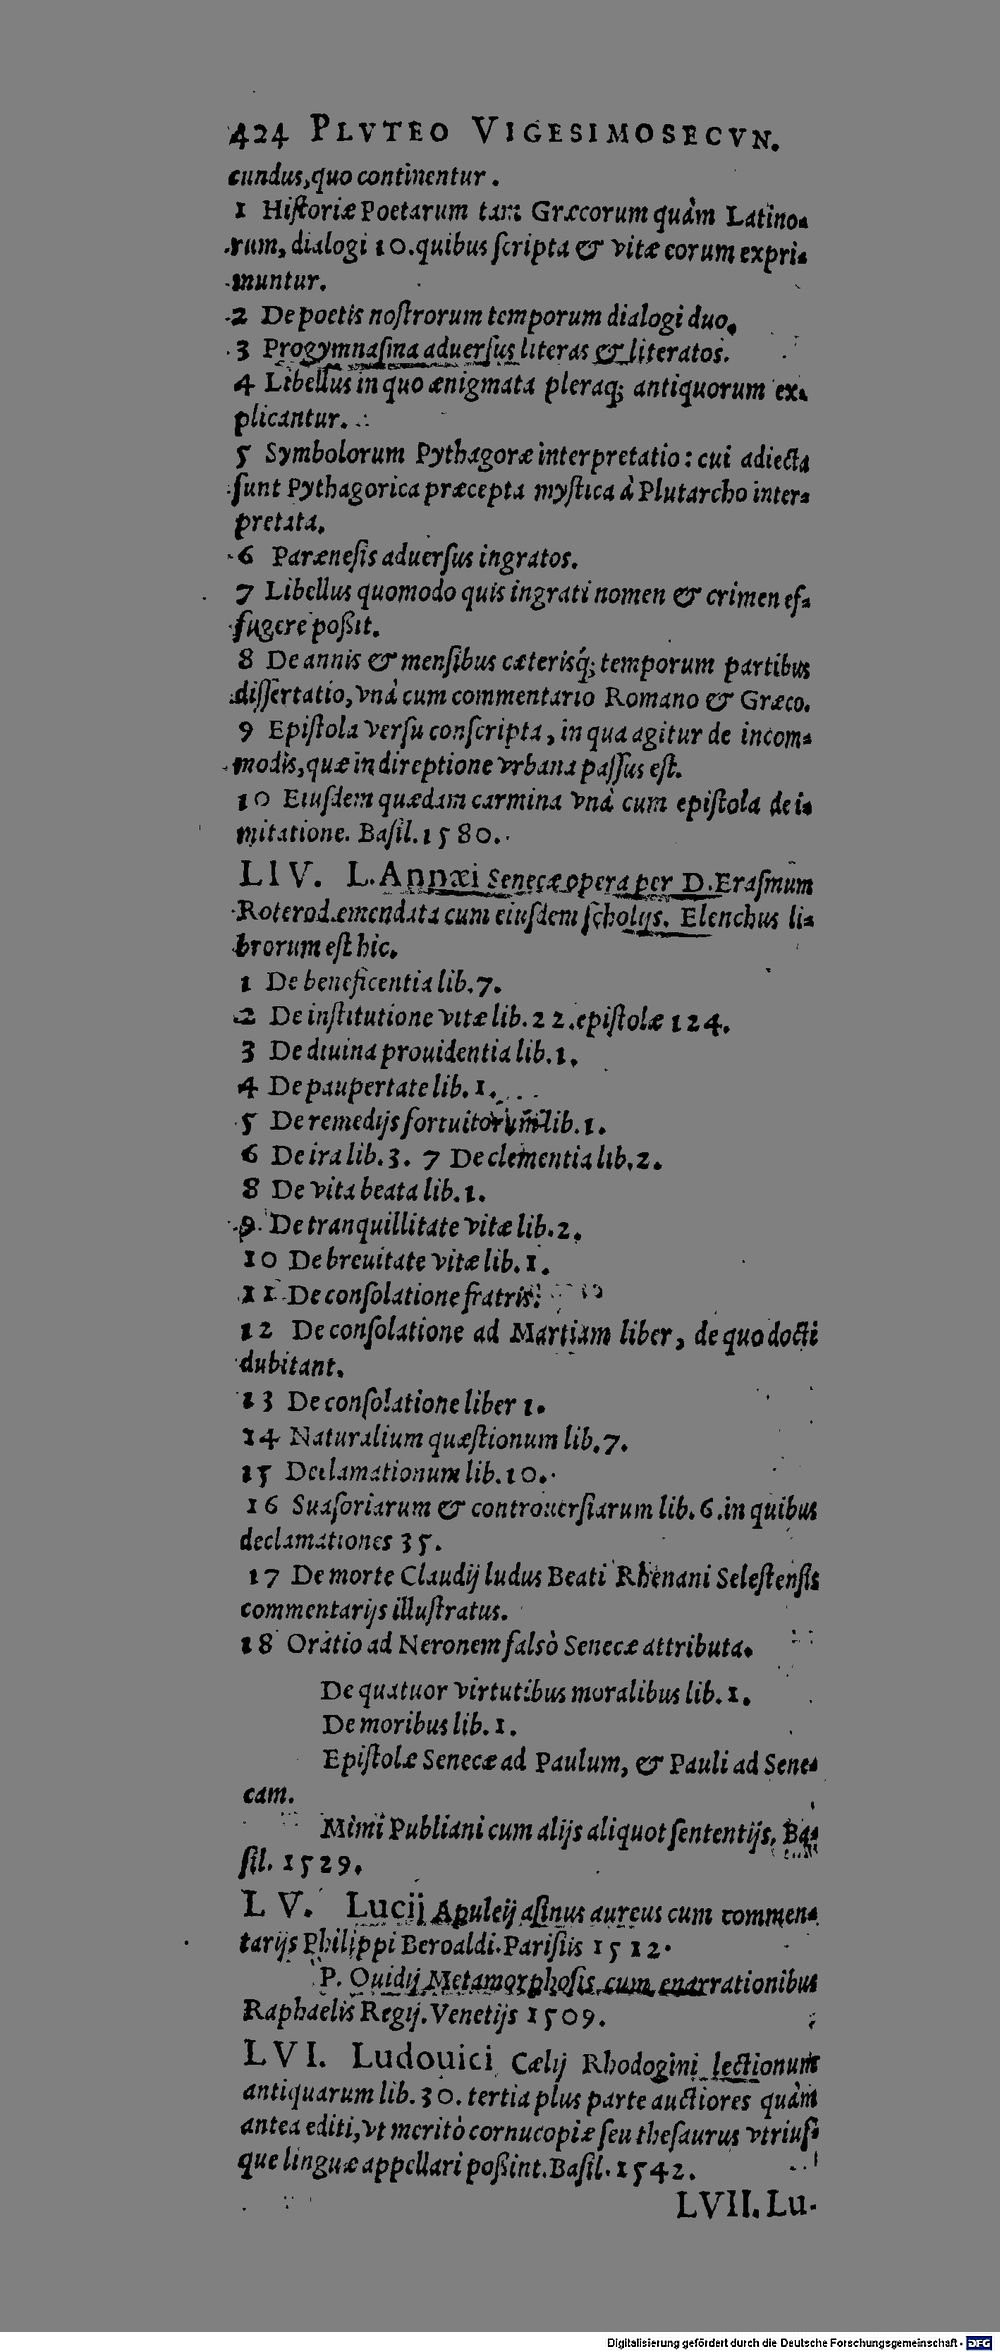 424 PLVTEO VIGESIMOSECVN.
cundus, quo continentur.
1 Historiæ Poetarum tam Græcorum quàm Latino-
rum, dialogi 10. quibus scripta & vitæ eorum expri-
muntur.
2 De poetis nostrorum temporum dialogi duo.
3 Progymnasma aduersus literas & literatos.
4 Libellus in quo ænigmata pleraq; antiquorum ex-
plicantur.
5 Symbolorum Pythagoræ interpretatio: cui adiecta
sunt Pythagorica præcepta mystica à Plutarcho inter-
pretata.
6 Parænesis aduersus ingratos.
7 Libellus quomodo quis ingrati nomen & crimen ef-
fugere poßit.
8 De annis & mensibus cæterisq́; temporum partibus
dissertatio, vnà cum commentario Romano & Græco.
9 Epistola versu conscripta, in qua agitur de incom-
modis, quæ in direptione vrbana passus est.
10 Eiusdem quædam carmina vnà cum epistola de i-
mitatione. Basil. 1580.
LIV. L. Annæi Senecæ opera per D. Erasmum
Roterod. emendata cum eiusdem scholijs. Elenchus li-
brorum est hic.
1 De beneficentia lib. 7.
2 De institutione vitæ lib. 22. epistolæ 124.
3 De diuina prouidentia lib. 1.
4 De paupertate lib. 1.
5 De remedijs fortuitorum lib. 1.
6 De ira lib. 3. 7 De clementia lib. 2.
8 De vita beata lib. 1.
9. De tranquillitate vitæ lib. 2.
10 De breuitate vitæ lib. 1.
11 De consolatione fratris.
12 De consolatione ad Martiam liber, de quo docti
dubitant.
13 De consolatione liber 1.
14 Naturalium quæstionum lib. 7.
15 Declamationum lib. 10.
16 Suasoriarum & controuersiarum lib. 6. in quibus
declamationes 35.
17 De morte Claudij ludus Beati Rhenani Selestensis
commentarijs illustratus.
18 Oratio ad Neronem falsò Senecæ attributa.
De quatuor virtutibus moralibus lib. 1.
De moribus lib. 1.
Epistolæ Senecæ ad Paulum, & Pauli ad Sene-
cam.
Mimi Publiani cum alijs aliquot sententijs. Ba-
sil. 1529.
LV. Lucij Apuleij asinus aureus cum commen-
tarijs Philippi Beroaldi. Parisiis 1512.
P. Ouidij Metamorphosis cum enarrationibus
Raphaelis Regij. Venetijs 1509.
LVI. Ludouici Cælij Rhodogini lectionum
antiquarum lib. 30. tertia plus parte auctiores quàm
antea editi, vt meritò cornucopiæ seu thesaurus vtrius-
que linguæ appellari poßint. Basil. 1542.
LVII. Lu-
Digitalisierung gefördert durch die Deutsche Forschungsgemeinschaft - DFG